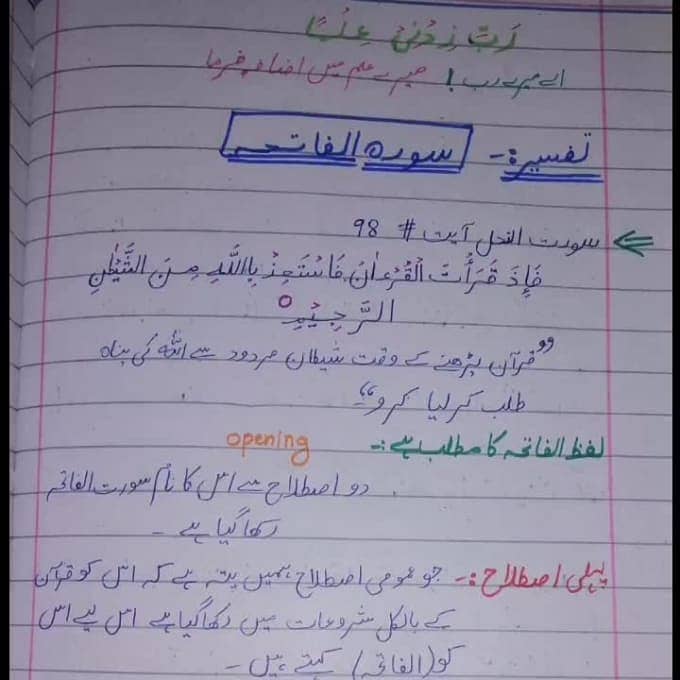 رَبِّ زِدْنِیْ عِلْمًا
اے میرے رب! میرے علم میں اضافہ فرما
تفسیر:- سورہ الفاتحہ
سورت النحل آیت # 98
فَإِذَ قَرَأْتَ الْقُرْءَانَ فَاسْتَعِذْ بِاللَّهِ مِنَ الشَّيْطٰنِ
الرَّجِيْمِ
"قرآن پڑھنے کے وقت شیطان مردود سے اللہ کی پناہ
طلب کر لیا کرو"
لفظ الفاتحہ کا مطلب ہے:- opening
دو اصطلاح سے اس کا نام سورت الفاتحہ
رکھا گیا ہے -
پہلی اصطلاح:- جو عمومی اصطلاح ہمیں پتہ ہے کہ اس کو قرآن
کے بالکل شروعات میں رکھا گیا ہے اس لیے اس
کو (الفاتحہ) کہتے ہیں -